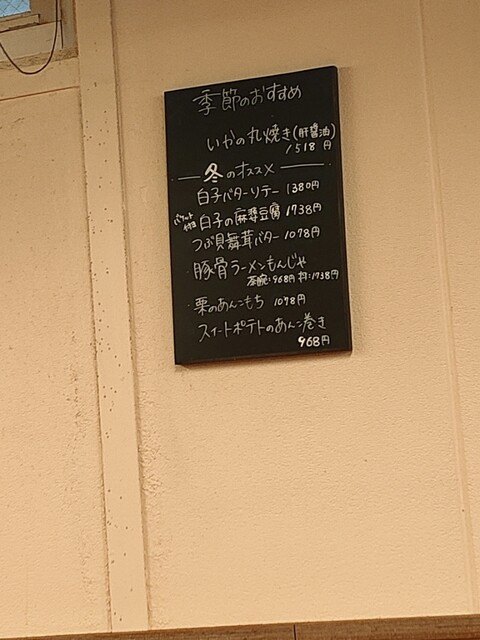 季節のおすすめ
いかの丸焼き(肝醤油)
1518円
冬のオススメ
白子バターソテー 1380円
バケット付き 白子の麻婆豆腐 1738円
つぶ貝舞茸バター 1078円
豚骨ラーメンもんじゃ
茶碗:968円 丼:1738円
・栗のあんこもち 1078円
スイートポテトのあんこ巻き
968円